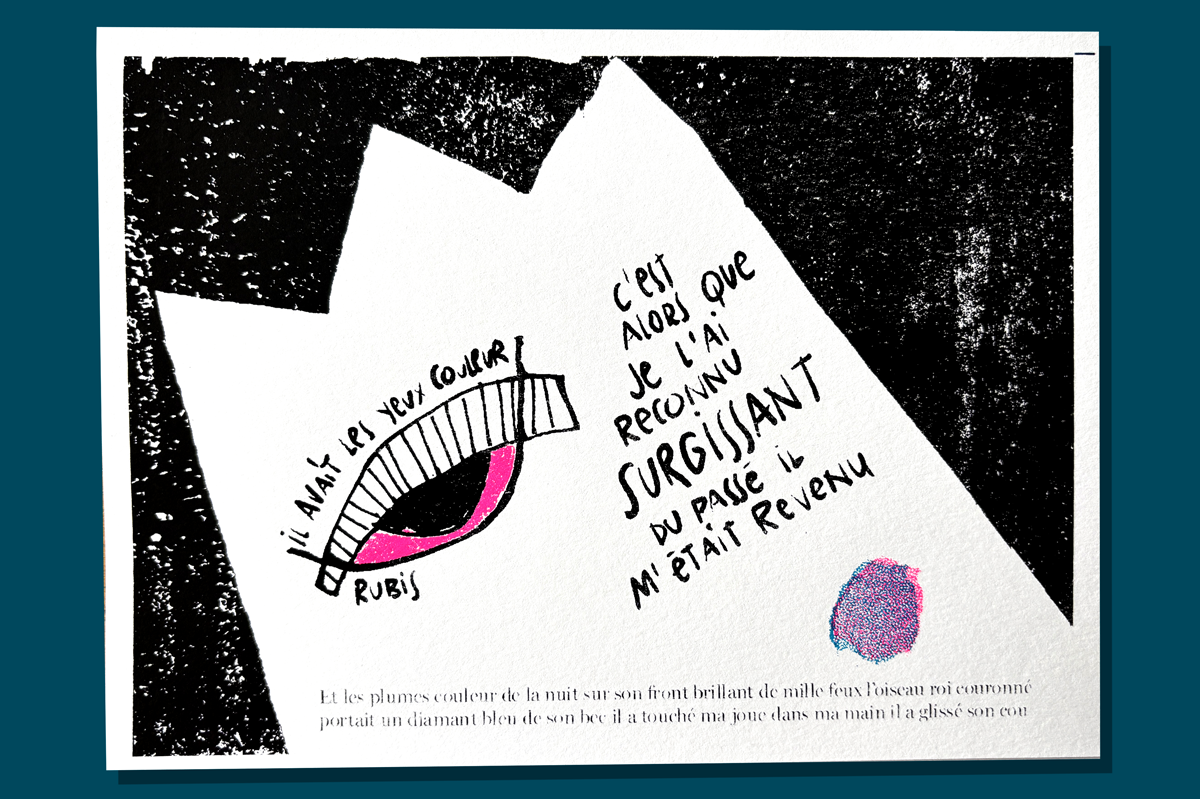 il AVAiT LES YEUX COULEUR
RUBiS
C'EST
ALORS QUE
JE L'Ai
RECONNU
SURGiSSANT
DU PASSÉ iL
M'ÉTAiT REVENU
Et les plumes couleur de la nuit sur son front brillant de mille feux l'oiseau roi couronné
portait un diamant bleu de son bec il a touché ma joue dans ma main il a glissé son cou